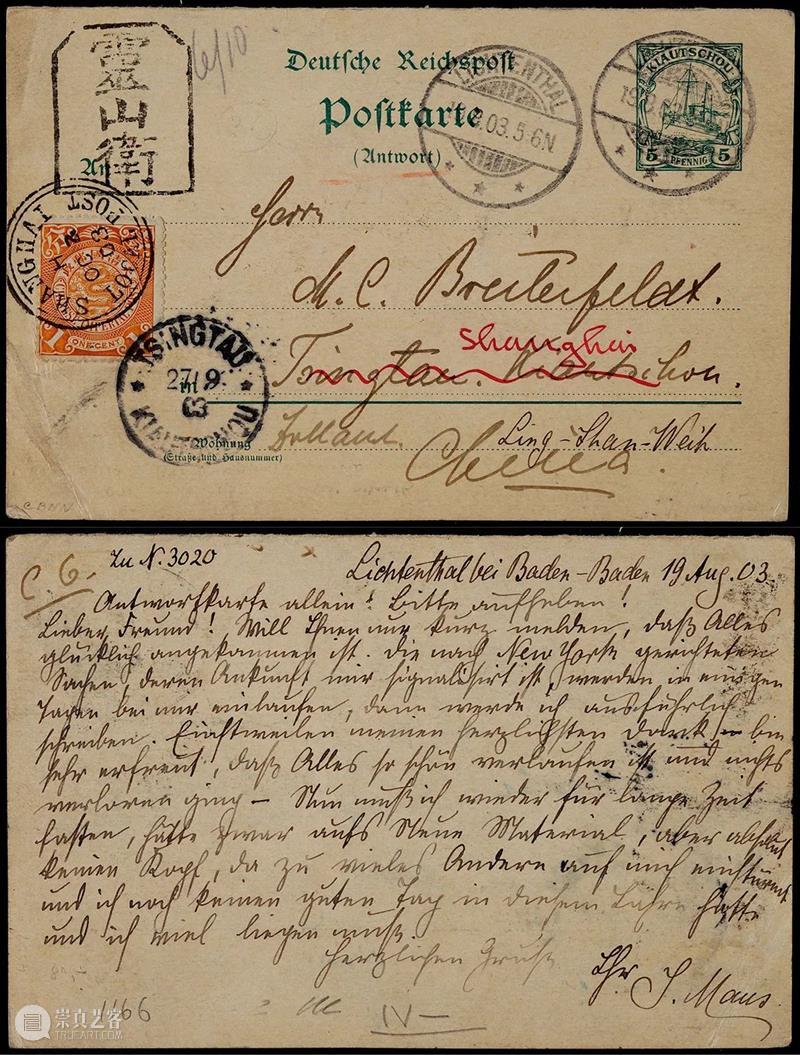 靈山衛
6/10
Deutsche Reichspost
Postkarte
(Antwort)
An
LICHTENTHAL
8.03.5-6N.
KIAUTSCHOU
5 PFENNIG 5
SHANGHAI
LOCAL POST
ONE CENT
1
TSINGTAU
27/9
03
KIAUTSCHOU
Herrn
M. C. Breitefeldt.
Shanghai
Tsingtau. Kiautschou.
in
Wohnung
(Straße und Hausnummer)
Ling-Shan-Weih
China.
C BNN
C. 6.
Zu N. 3020
Lichtenthal bei Baden-Baden 19 Aug. 03.
Antwortkarte allein! Bitte aufheben!
Lieber Freund! Will Ihnen nur kurz melden, daß Alles
glücklich angekommen ist. Die nach New York gerichteten
Sachen, deren Ankunft mir signalisirt ist, werden in einigen
Tagen bei mir einlaufen, dann werde ich ausführlich
schreiben. Einstweilen meinen herzlichsten Dank – bin
sehr erfreut, daß Alles so schön verlaufen ist und nichts
verloren ging – Nun muß ich wieder für lange Zeit
fasten, hätte zwar aufs Neue Material, aber absolut
keinen Kopf, da zu vieles Andere auf mich einstürmt
und ich noch keinen guten Tag in diesem Jahre hatte
und ich viel liegen muß.
Herzlichen Gruß
Ihr J. Maus.
1166
IV–
崇真艺客
TRUEART.COM